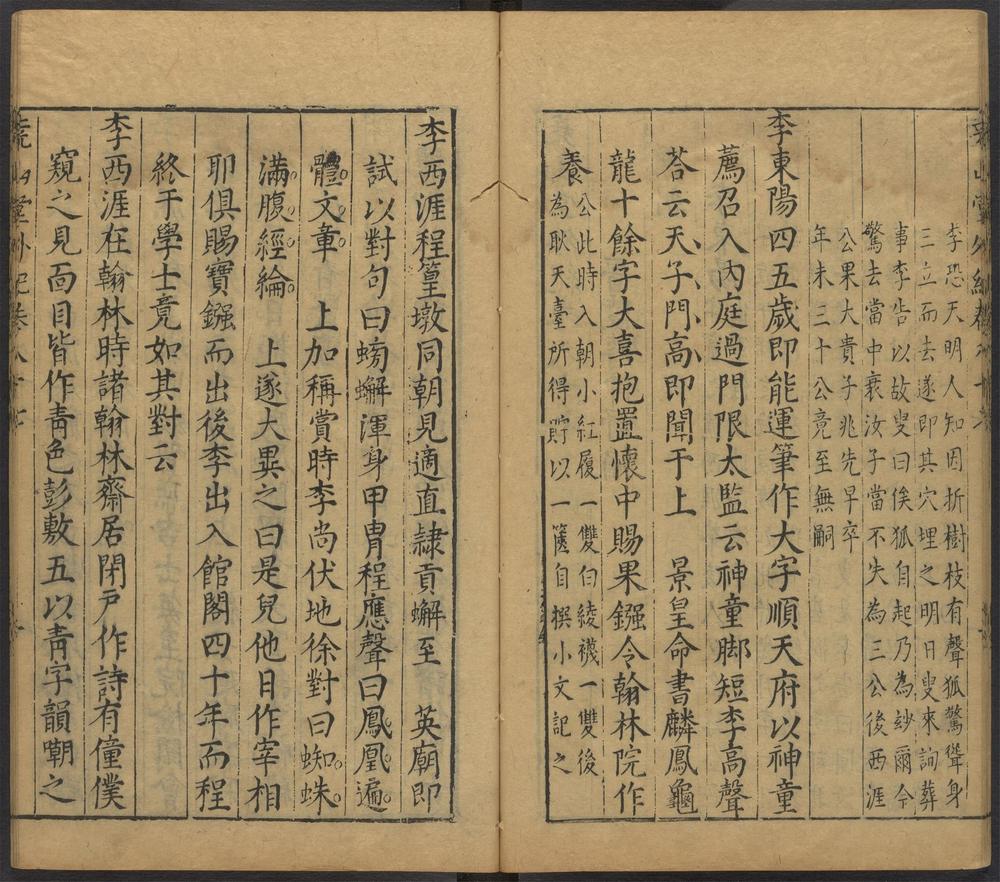 李恐天明人知因折樹枝有聲狐驚聳身
三立而去遂即其穴埋之明日叟來詢葬
事李告以故叟曰俟狐自起乃為妙爾今
驚去當中衰汝子當不失為三公後西涯
公果大貴子兆先早卒
年未三十公竟至無嗣
李東陽四五歲即能運筆作大字順天府以神童
薦召入內庭過門限太監云神童脚短李高聲
荅云天子門高即聞于上　景皇命書麟鳳龜
龍十餘字大喜抱置懷中賜果鏹令翰林院作
養公此時入朝小紅履一雙白綾襪一雙後
為耿天臺所得貯以一篋自撰小文記之
李西涯程篁墩同朝見適直隸貢蠏至　英廟即
試以對句曰螃蠏渾身甲冑程應聲曰鳳凰遍
體文章　上加稱賞時李尚伏地徐對曰蜘蛛
滿腹經綸　上遂大異之曰是兒他日作宰相
耶俱賜寶鏹而出後李出入館閣四十年而程
終于學士竟如其對云
李西涯在翰林時諸翰林齋居閉戸作詩有僮僕
窺之見面目皆作靑色彭敷五以靑字韻嘲之